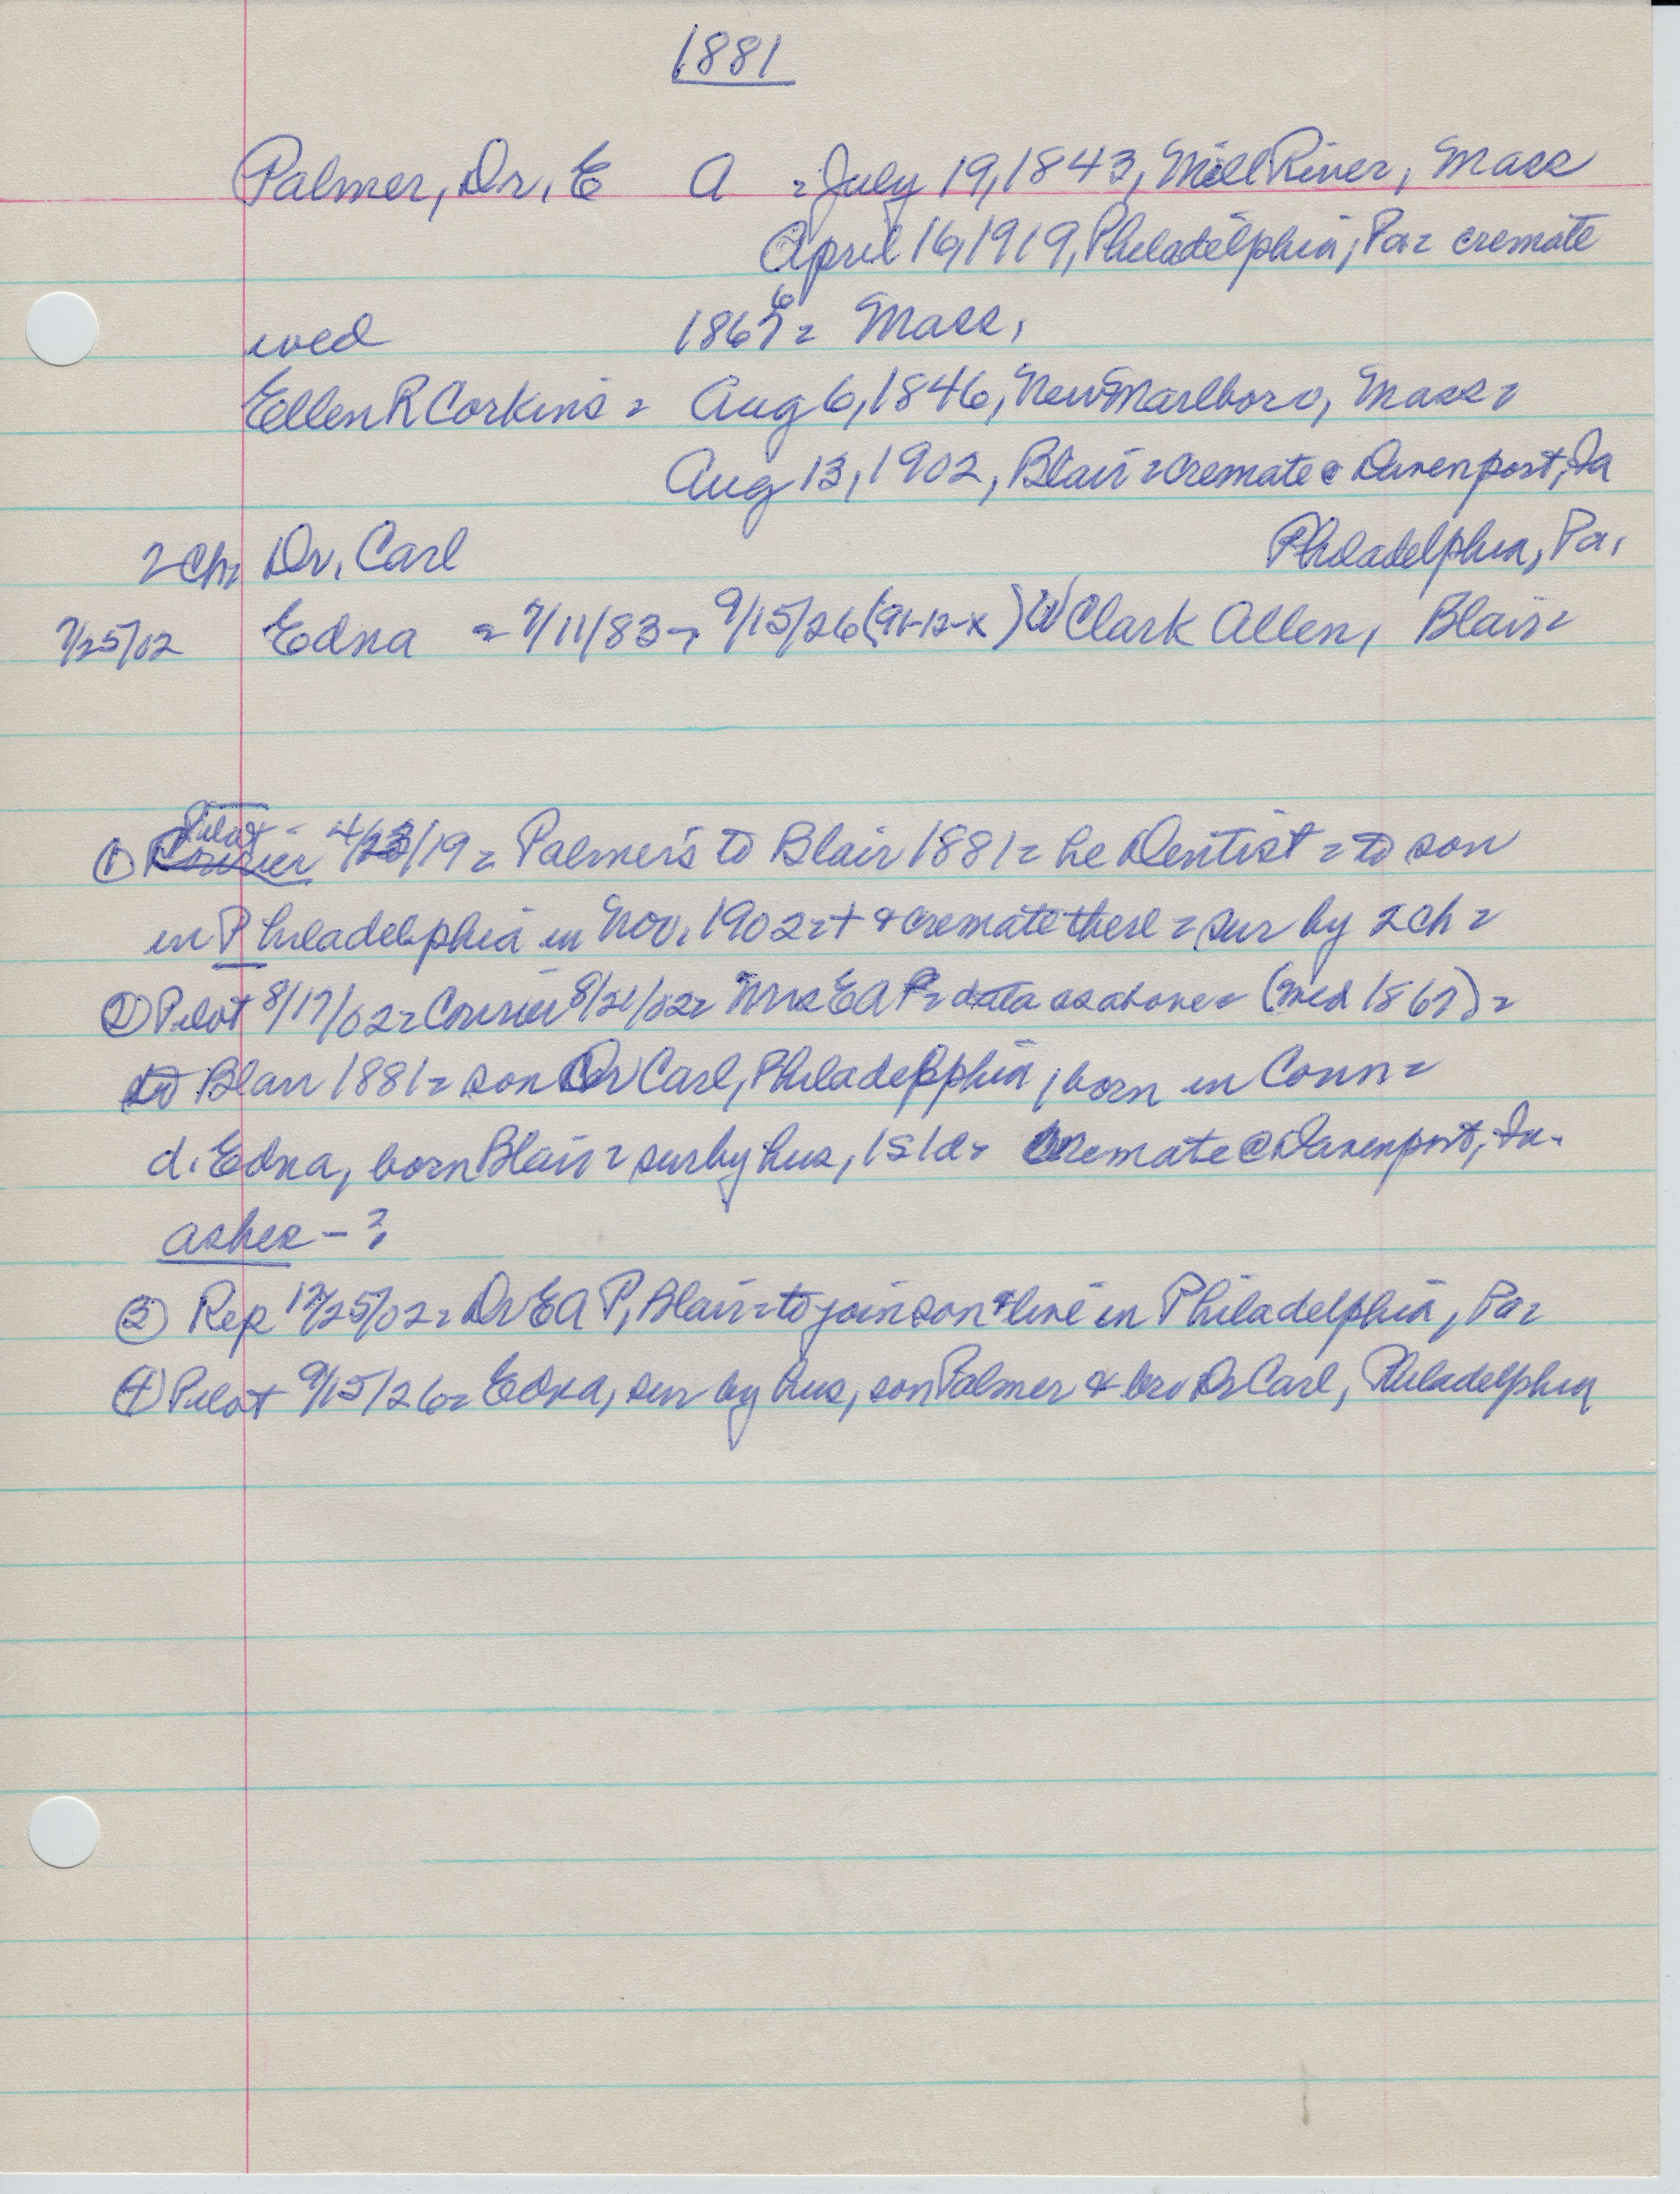 1881
Palmer, Dr. E A = July 19, 1843, Mill River, Mass
April 16, 1919, Philadelphia, Pa = cremate
6
wed 1867 = Mass,
Ellen R Corkins = Aug 6, 1846, New Marlboro, Mass =
Aug 13, 1902, Blair = cremate @ Davenport, Ia
2 Ch, Dr. Carl Philadelphia, Pa,
7/25/02 Edna = 7/11/83 - 9/15/26 (91-12-X) W Clark Allen, Blair =
Pilot -
① 4/23/19 = Palmers to Blair 1881 = he Dentist = to son
in Philadelphia in Nov. 1902 = + & cremate there = sur by 2 ch =
② Pilot 8/17/02 = Courier 8/21/02 = Mrs E A P = data as above = (wed 1867) =
to Blair 1881 = son Dr Carl, Philadelphia, born in Conn =
d. Edna, born Blair = sur by hus, 1s 1d = cremate @ Davenport, Ia.
ashes - ?
③ Rep 12/25/02 = Dr E A P, Blair = to join son & live in Philadelphia, Pa =
④ Pilot 9/15/26 = Edna, sur by hus, son Palmer & bro Dr Carl, Philadelphia